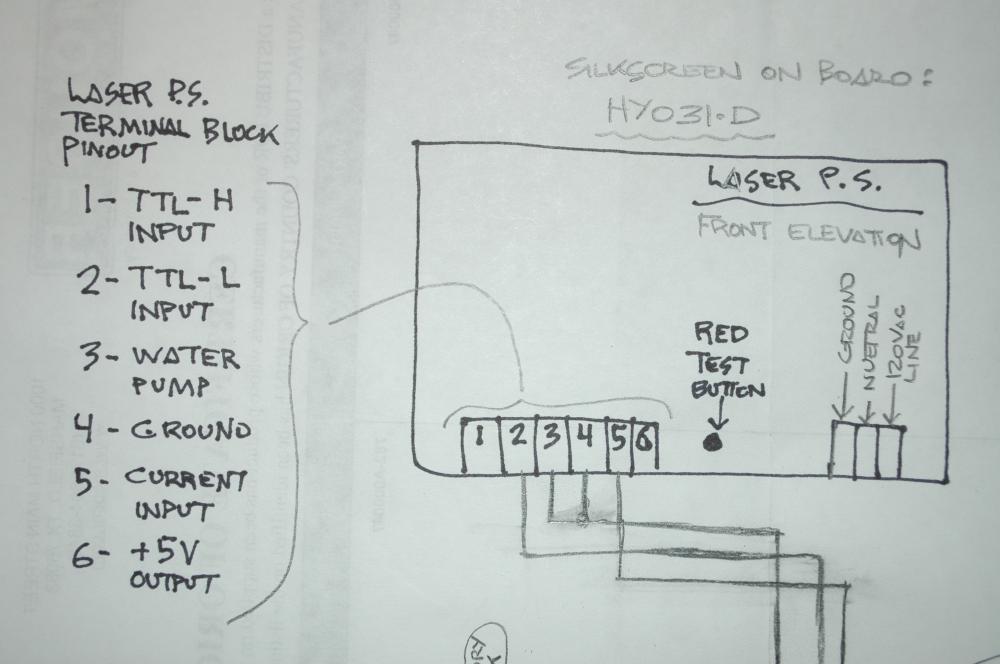 LASER P.S.
TERMINAL BLOCK
PINOUT
1- TTL-H
INPUT
2- TTL-L
INPUT
3- WATER
PUMP
4- GROUND
5- CURRENT
INPUT
6- +5V
OUTPUT
SILKSCREEN ON BOARD:
HY031.D
LASER P.S.
FRONT ELEVATION
RED
TEST
BUTTON
GROUND
NUETRAL
120VAC
LINE
1 2 3 4 5 6